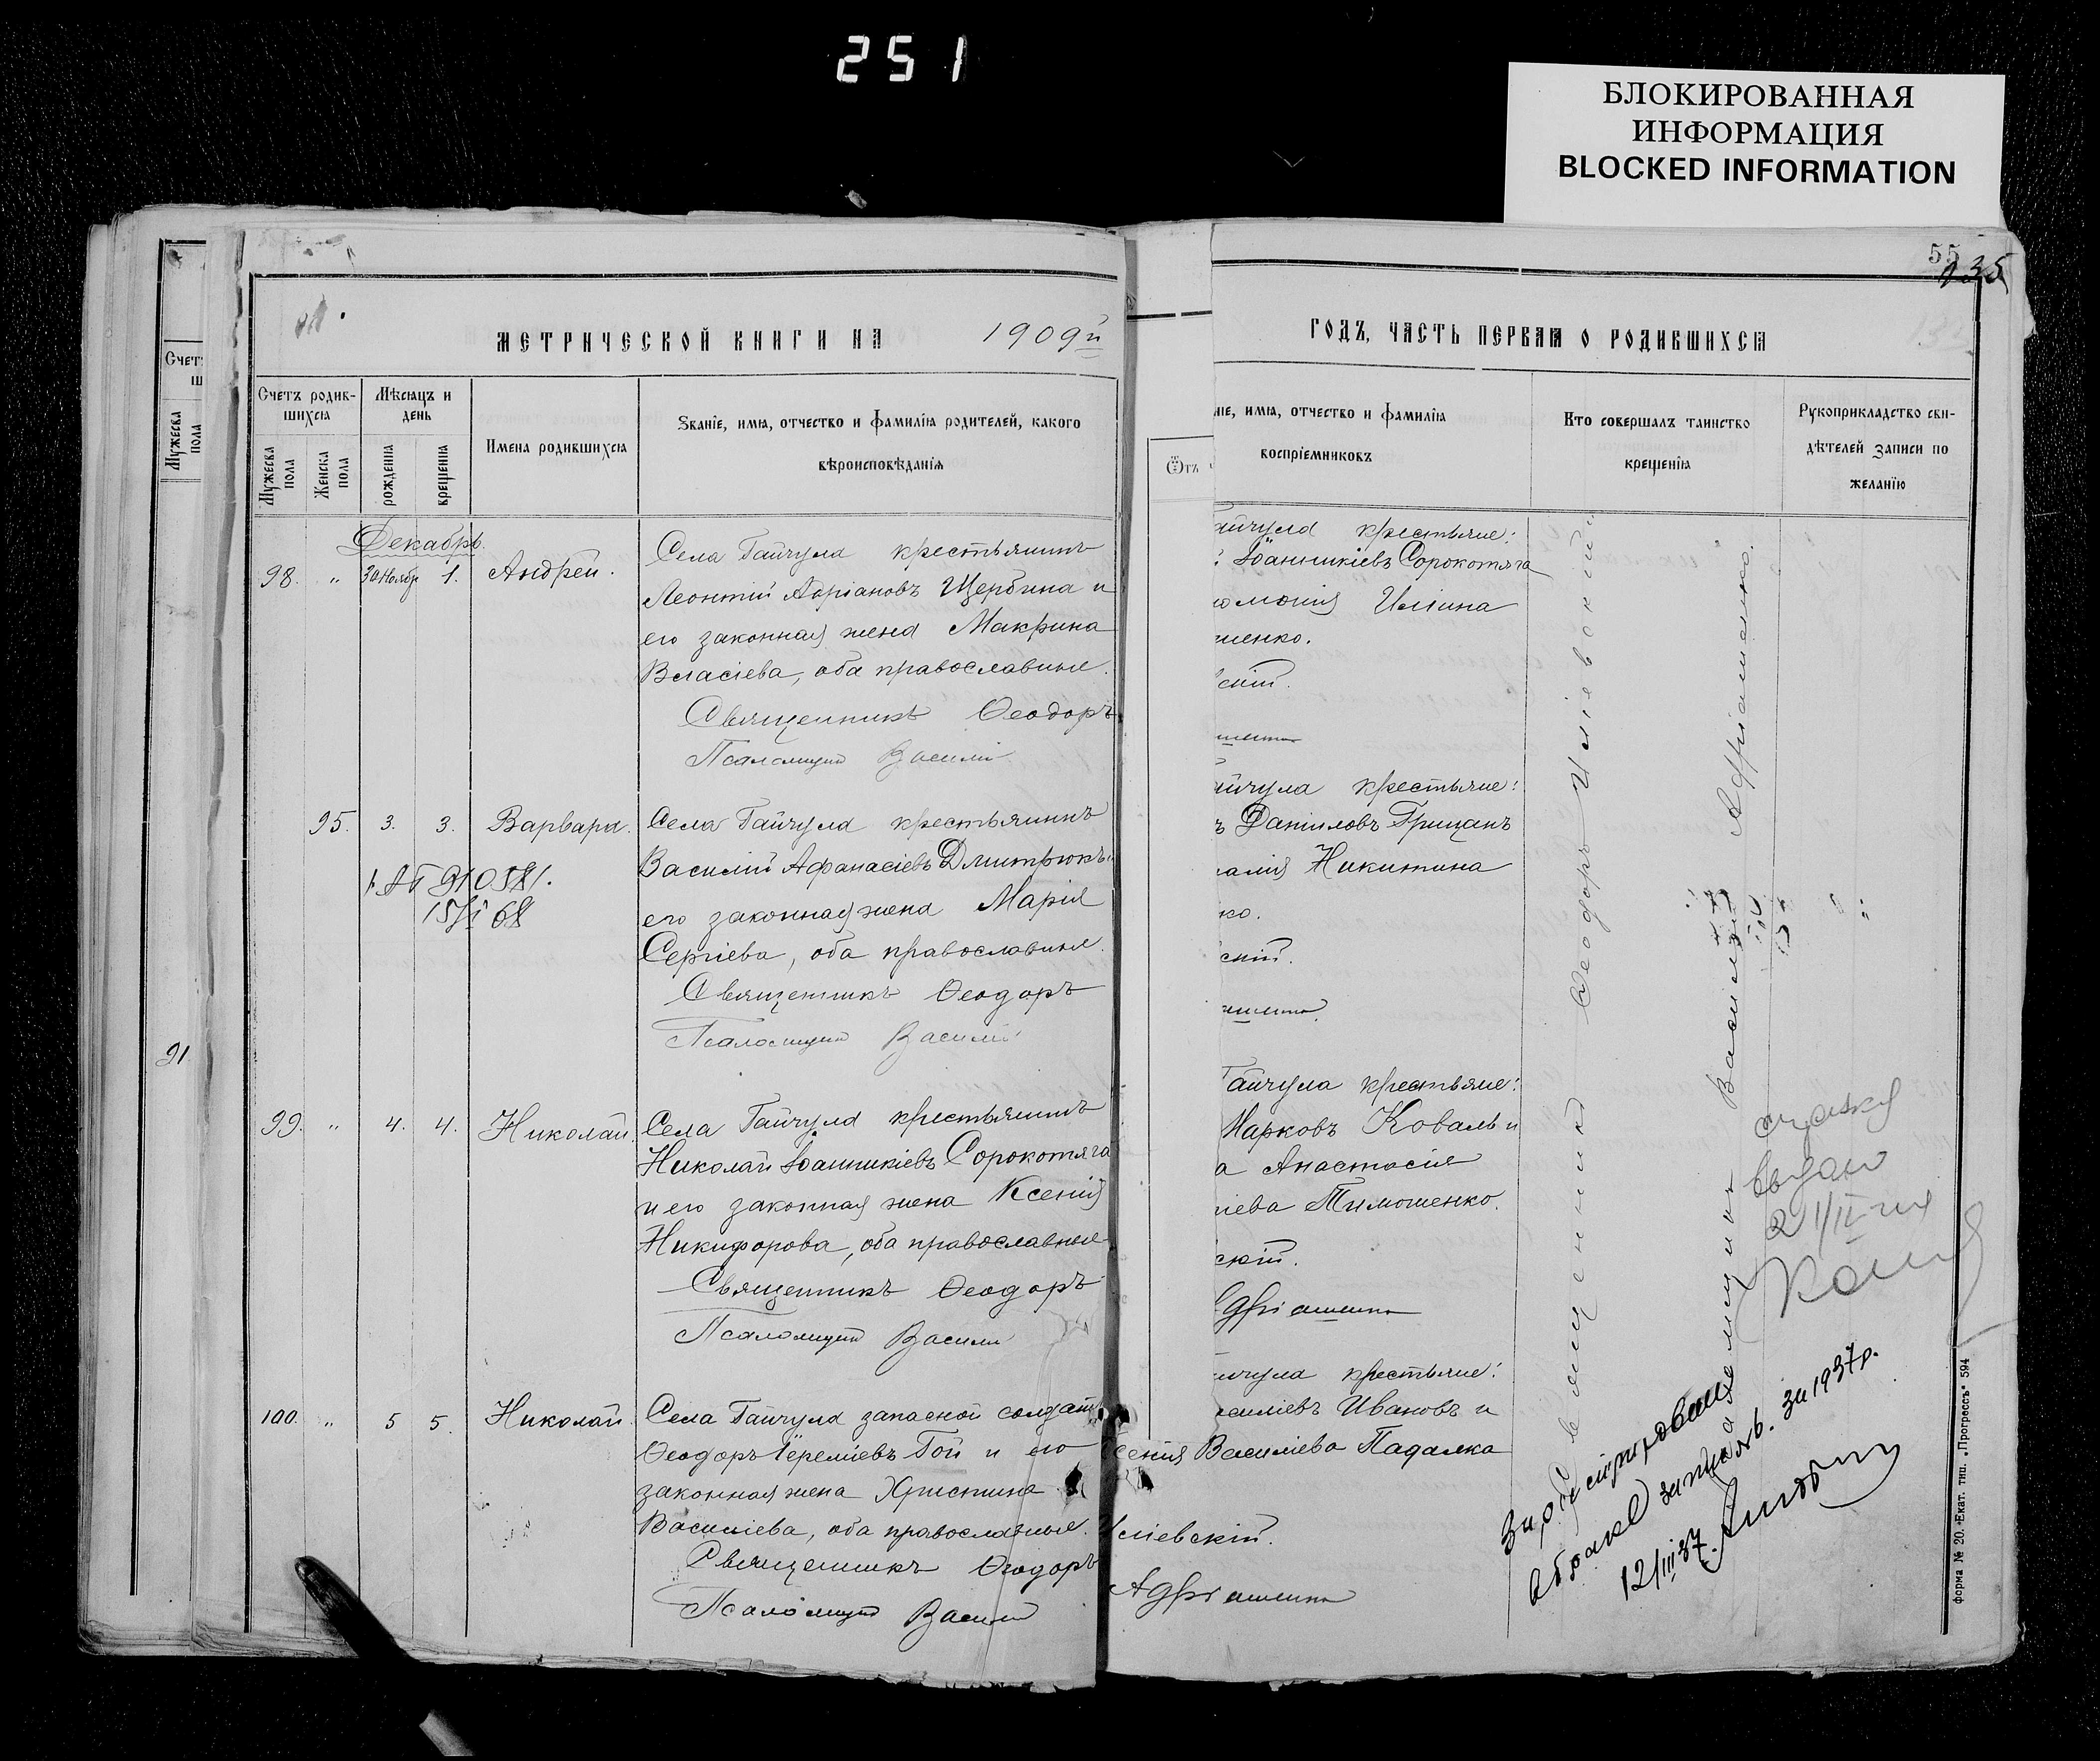 251
БЛОКИРОВАННАЯ
ИНФОРМАЦИЯ
BLOCKED INFORMATION
55
135
МЕТРИЧЕСКОЙ КНИГИ НА 1909й
ГОДЪ, ЧАСТЬ ПЕРВАЯ О РОДИВШИХСЯ
Счетъ родив-
шихся
Мужеска пола
Женска пола
Мѣсяцъ и
день
рожденія
крещенія
Имена родившихся
Званіе, имя, отчество и фамилія родителей, какого
вѣроисповѣданія
ніе, имя, отчество и фамилія
воспріемниковъ
Кто совершалъ таинство
крещенія
Рукоприкладство сви-
дѣтелей записи по
желанію
Счет
Мужеска пола
91
Декабрь.
98. " 30 Ноябр 1. Андрей.
Села Гайчула крестьянинъ
Леонтій Адріановъ Щербина и
его законная жена Макрина
Власіева, оба православные.
Священникъ Ѳеодоръ
Псаломщикъ Василій
айчула крестьяне:
Іоанникіевъ Сорокотяга
Иліина
шенко.
скій.
95. 3. 3. Варвара.
910581.
15/I 68
Села Гайчула крестьянинъ
Василій Афанасіевъ Дмитрюкъ и
его законная жена Марія
Сергіева, оба православные.
Священникъ Ѳеодоръ
Псаломщикъ Василій
айчула крестьяне:
ъ Даніиловъ Грицанъ
алія Никитина
ко.
скій.
99. " 4. 4. Николай.
Села Гайчула крестьянинъ
Николай Іоанникіевъ Сорокотяга
и его законная жена Ксенія
Никифорова, оба православные
Священникъ Ѳеодоръ
Псаломщикъ Василій
Гайчула крестьяне:
Марковъ Коваль и
а Анастасія
іева Тимошенко.
скій.
100. " 5 5. Николай.
Села Гайчула запасной солдатъ
Ѳеодоръ Іереміевъ Гой и его
законная жена Христина
Василіева, оба православные.
Священникъ Ѳеодоръ
Псаломщикъ Василій
йчула крестьяне:
силіевъ Ивановъ и
сенія Василіева Падалка
ліевскій.
Адріашенко
Священникъ Ѳеодоръ Иліевскій
Псаломщикъ Василій Адріашенко.
видано
21/II
12/III 37.
за 1937р.
форма № 20. Екат. тип. „Прогрессъ“ 594